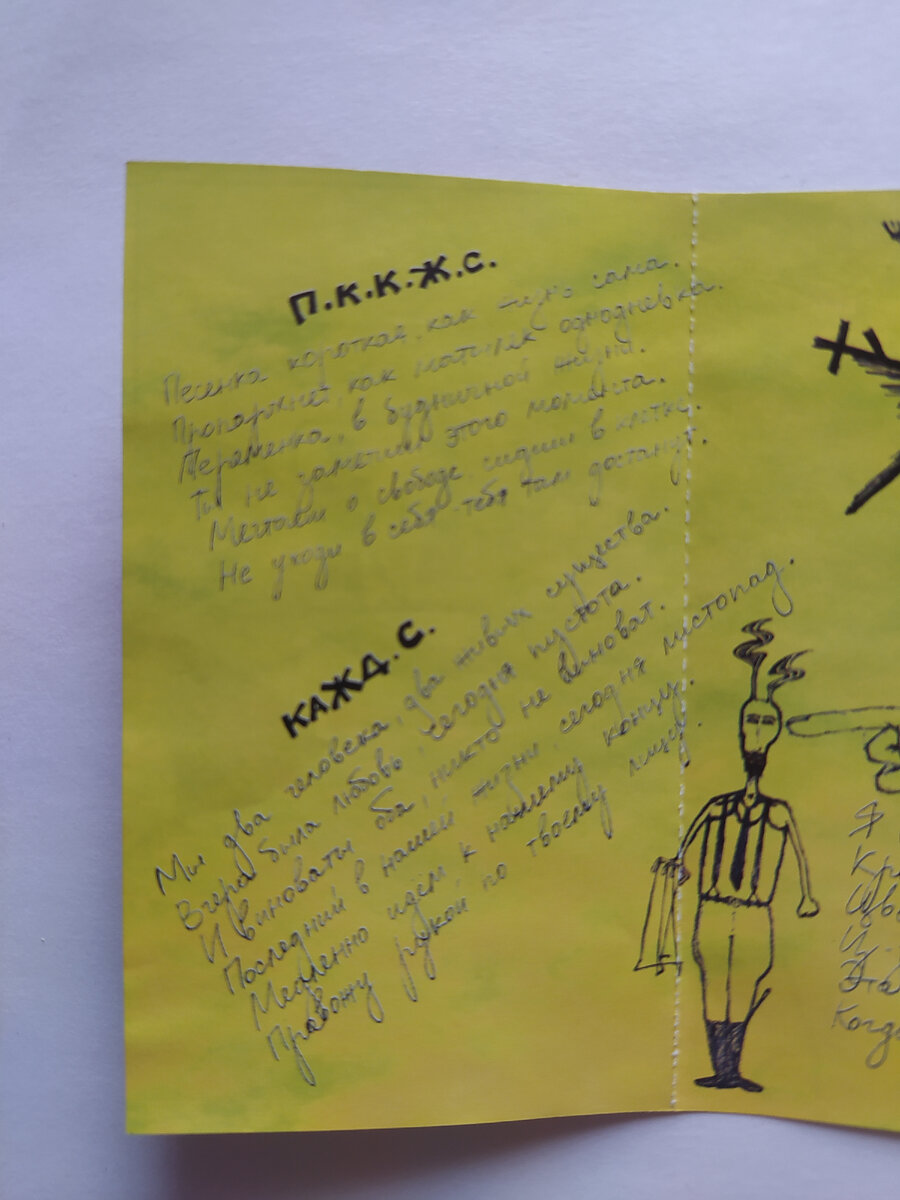 П.К.К.Ж.С.
Песенка короткая, как жизнь сама.
Пропорхнёт, как мотылёк однодневка.
Переменка, в будничной жизни.
Ты не заметил этого момента.
Мечтаем о свободе, сидим в клетке.
Не уходи в себя тебя там достанут.
КАЖД.С.
Мы два человека, два живых существа.
Вчера была любовь, сегодня пустота.
И виноваты оба, никто не виноват.
Последний в нашей жизни, сегодня листопад.
Медленно идём к нашему концу.
Правожу рукой по твоему лицу.
Я
Кр
И
Эта
Когд